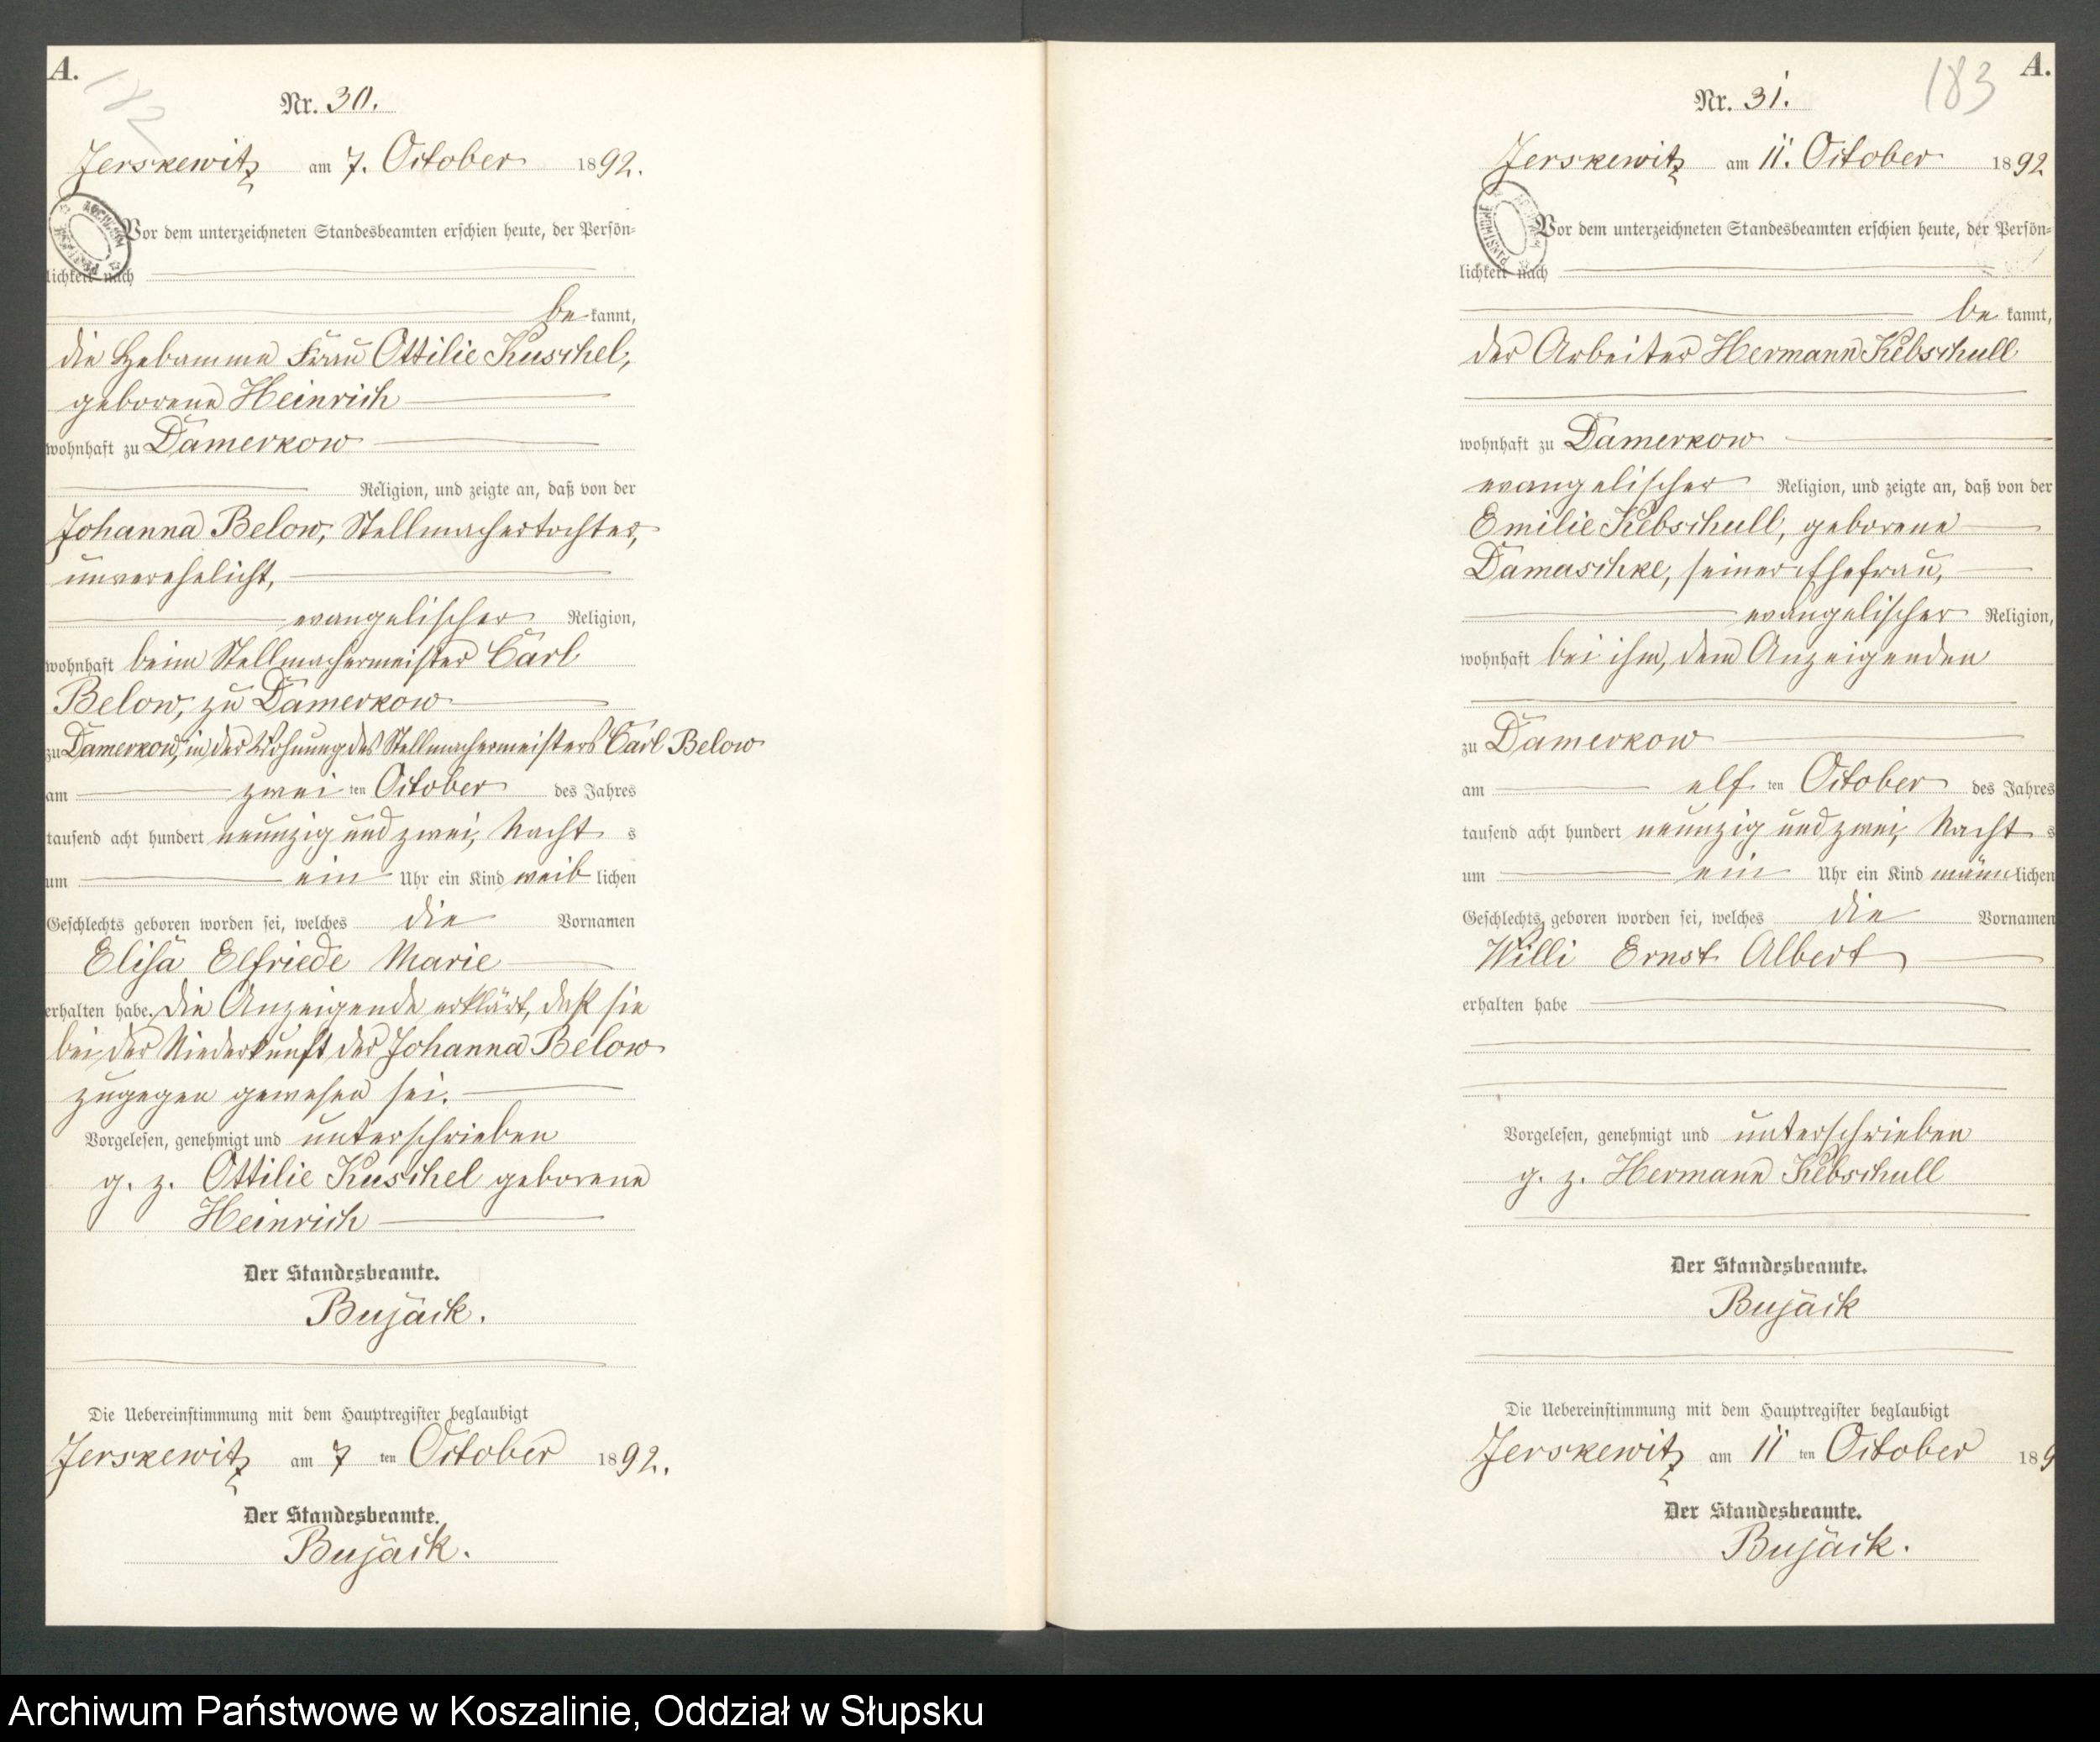 A.
182
Nr. 30.
Jerskewitz am 7. October 1892.
Vor dem unterzeichneten Standesbeamten erschien heute, der Persön-
lichkeit nach
be kannt,
die Hebamme Frau Ottilie Kuschel,
geborene Heinrich
wohnhaft zu Damerkow
Religion, und zeigte an, daß von der
Johanna Below, Stellmachertochter,
unverehelicht,
evangelischer Religion,
wohnhaft beim Stellmachermeister Carl
Below, zu Damerkow
zu Damerkow, in der Wohnung des Stellmachermeisters Carl Below
am zwei ten October des Jahres
tausend acht hundert neunzig und zwei, Nacht s
um ein Uhr ein Kind weib lichen
Geschlechts geboren worden sei, welches die Vornamen
Elisa Elfriede Marie
erhalten habe. Die Anzeigende erklärt, daß sie
bei der Niederkunft der Johanna Below
zugegen gewesen sei.
Vorgelesen, genehmigt und unterschrieben
g. z. Ottilie Kuschel geborene
Heinrich
Der Standesbeamte.
Bujack.
Die Uebereinstimmung mit dem Hauptregister beglaubigt
Jerskewitz am 7 ten October 1892.
Der Standesbeamte.
Bujack.
A.
183
Nr. 31.
Jerskewitz am 11. October 1892
Vor dem unterzeichneten Standesbeamten erschien heute, der Persön-
lichkeit nach
be kannt,
der Arbeiter Hermann Kebschull
wohnhaft zu Damerkow
evangelischer Religion, und zeigte an, daß von der
Emilie Kebschull, geborene
Damaschke, seiner Ehefrau,
evangelischer Religion,
wohnhaft bei ihm, dem Anzeigenden
zu Damerkow
am elf ten October des Jahres
tausend acht hundert neunzig und zwei, Nacht s
um ein Uhr ein Kind männ lichen
Geschlechts geboren worden sei, welches die Vornamen
Willi Ernst Albert
erhalten habe
Vorgelesen, genehmigt und unterschrieben
g. z. Hermann Kebschull
Der Standesbeamte.
Bujack
Die Uebereinstimmung mit dem Hauptregister beglaubigt
Jerskewitz am 11 ten October 189
Der Standesbeamte.
Bujack.
Archiwum Państwowe w Koszalinie, Oddział w Słupsku